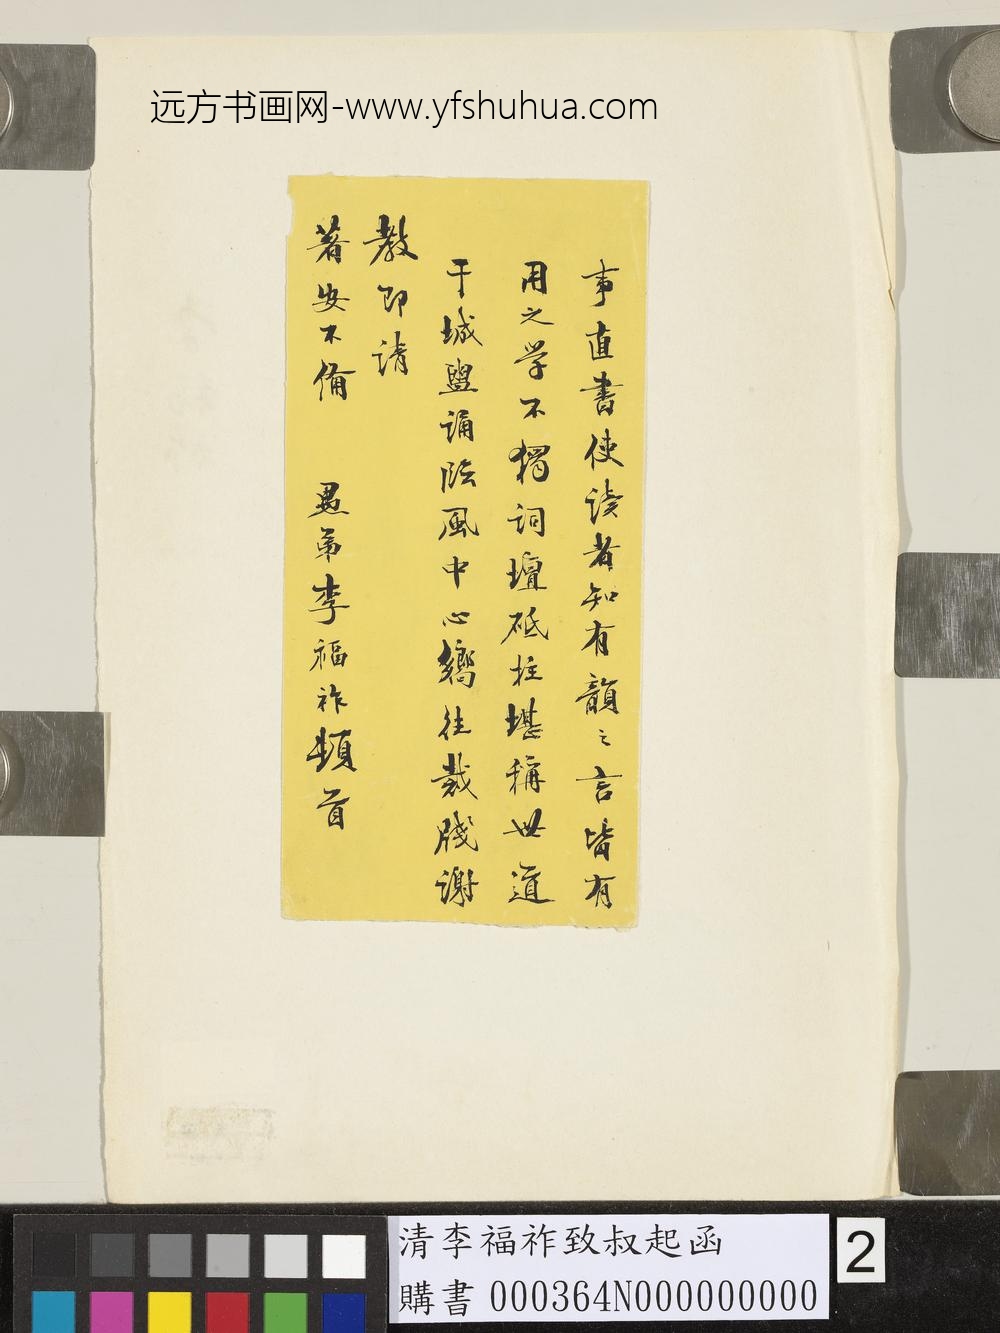 远方书画网-www.yfshuhua.com
事直書使读者知有韻之言皆有
用之学不獨詞壇砥柱堪稱世道
干城盥誦臨風中心嚮往裁牋谢
教即请
著安不俻 愚弟李福祚頓首
清李福祚致叔起函
購書 000364N000000000
2